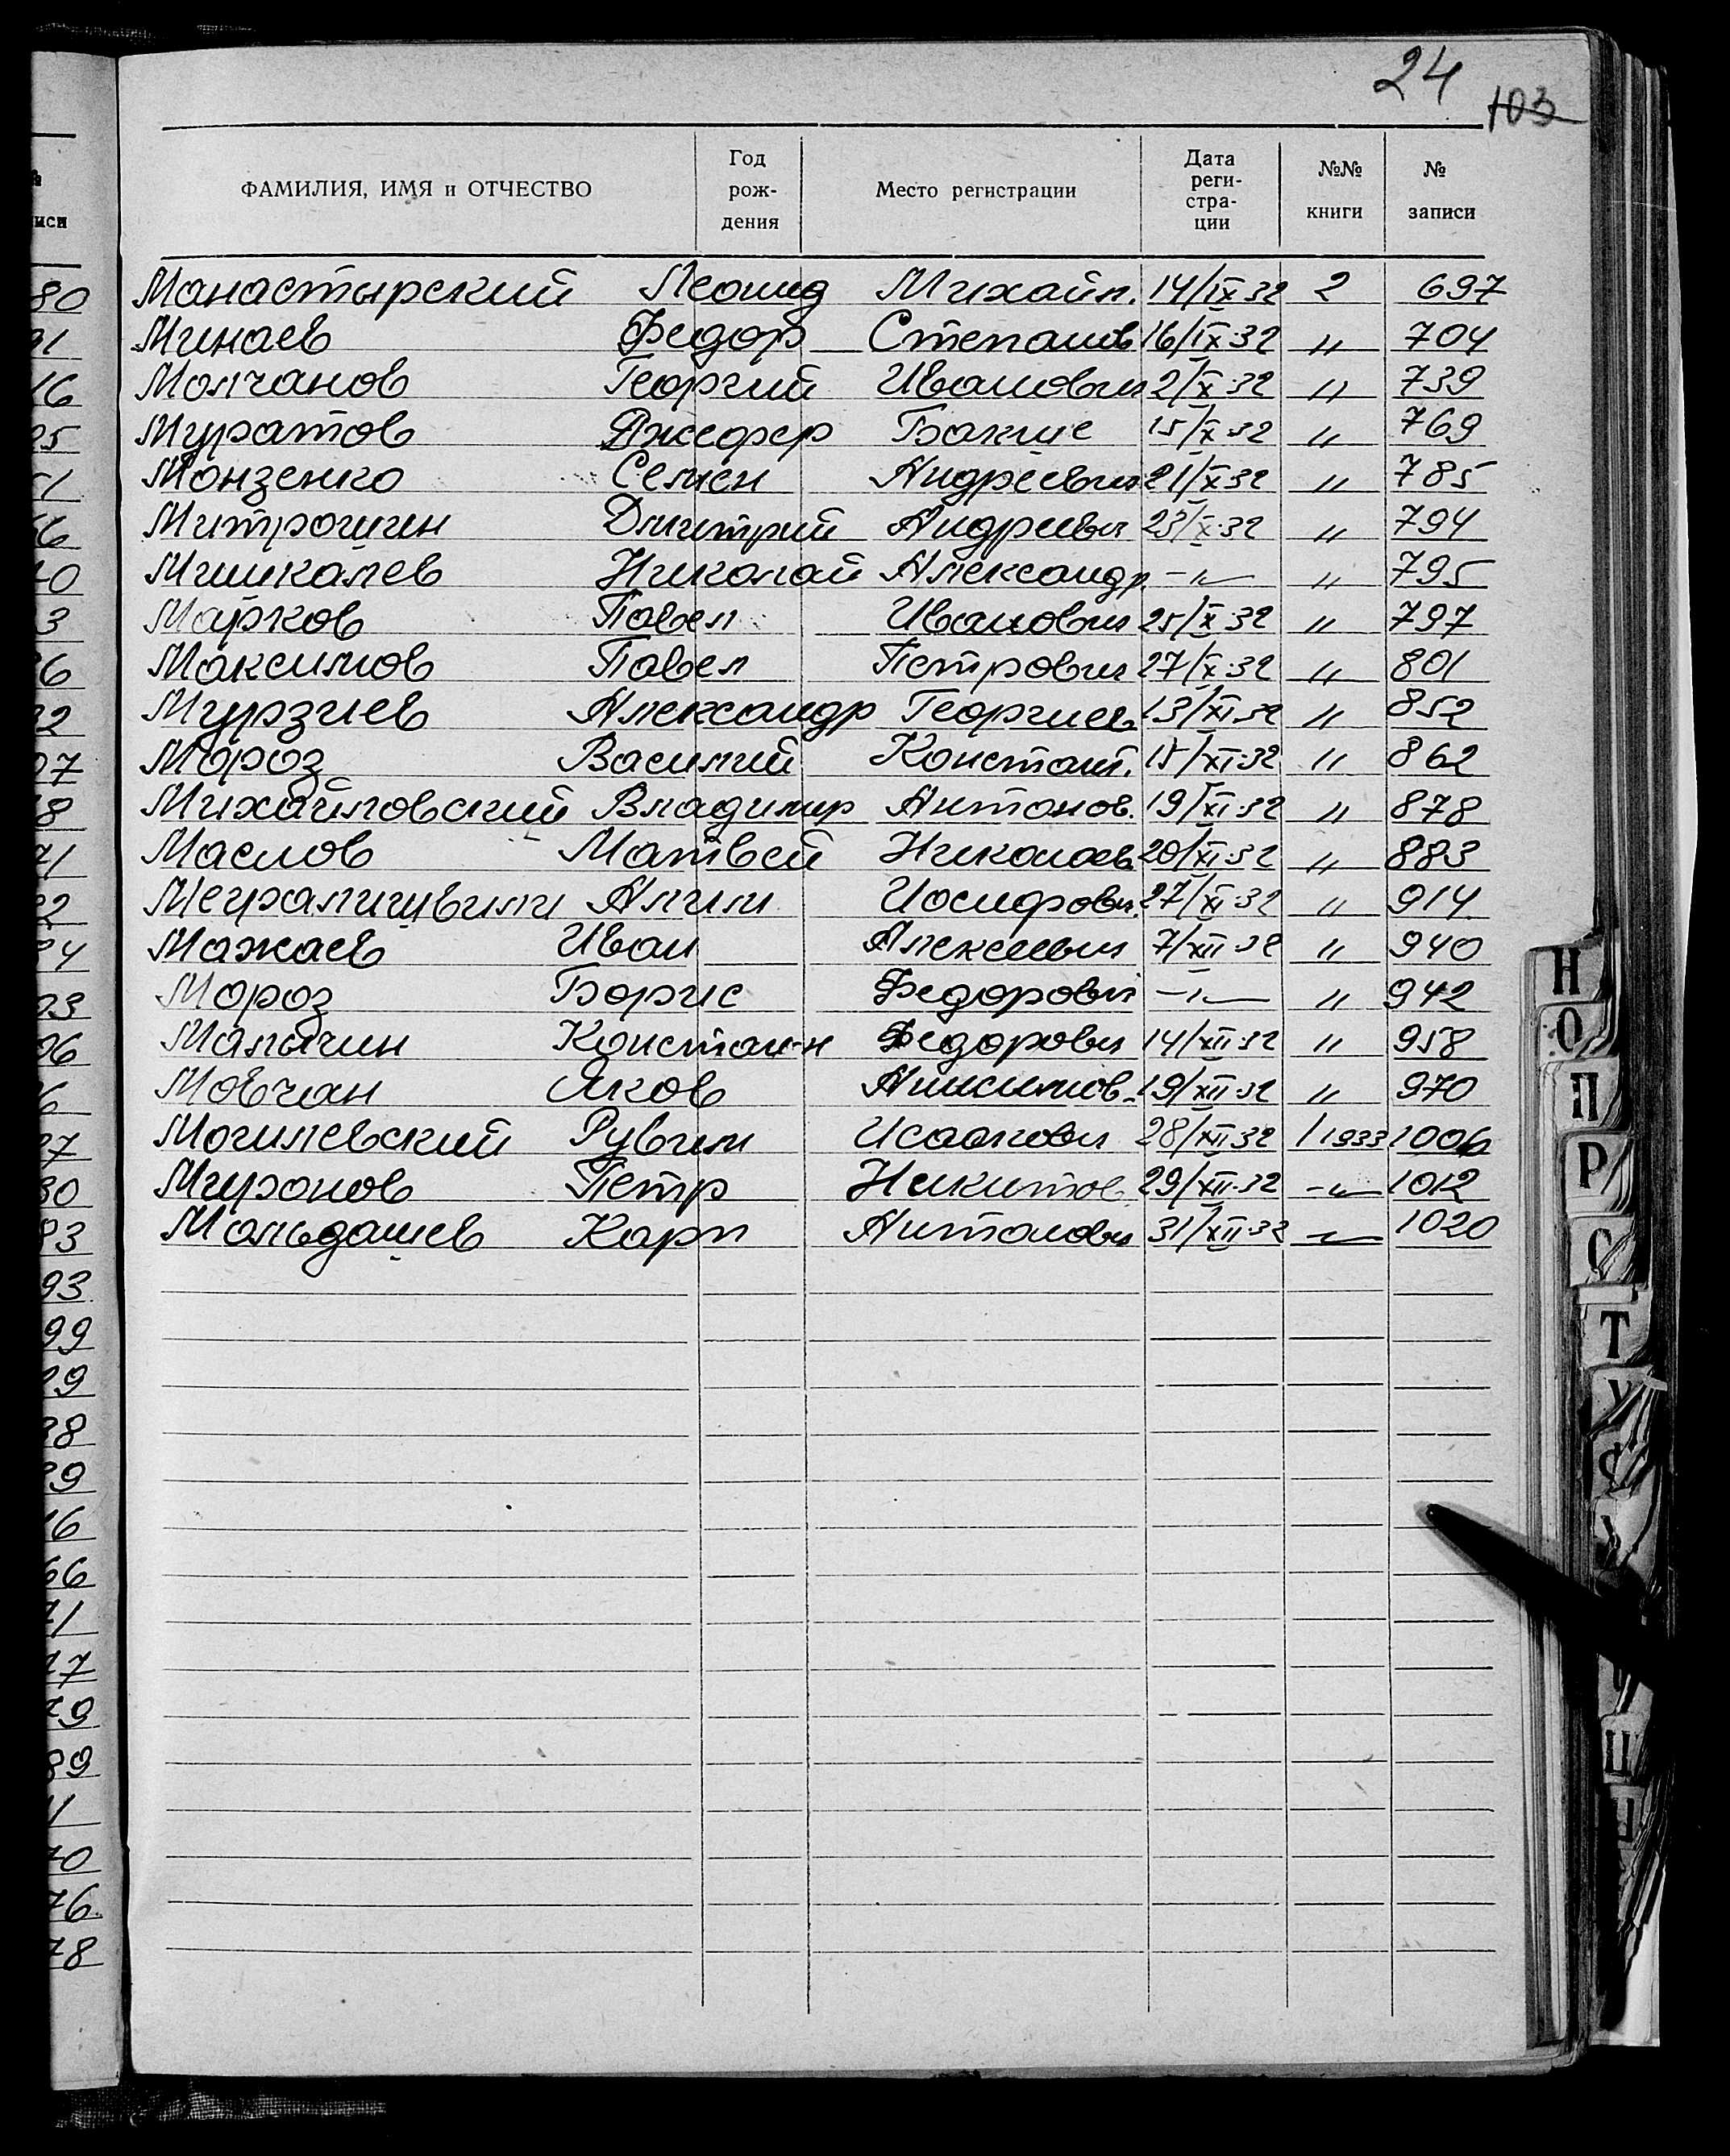 24
103
ФАМИЛИЯ, ИМЯ и ОТЧЕСТВО Год рождения Место регистрации Дата регистрации №№ книги № записи
Манастырский Леонид Михайл. 14/IX 32 2 697
Минаев Федор Степанов 16/IX 32 " 704
Молчанов Георгий Иванович 2/X 32 " 739
Муратов Джефер Бакше 15/X 32 " 769
Монзенко Семен Андреевич 21/X 32 " 785
Митрошин Дмитрий Андреевич 23/X 32 " 794
Мишкалев Николай Александр. -"- " 795
Марков Павел Иванович 25/X 32 " 797
Максимов Павел Петрович 27/X 32 " 801
Мурзиев Александр Георгиев 13/XI 32 " 852
Мороз Василий Констант. 15/XI 32 " 862
Михайловский Владимир Антонов. 19/XI 32 " 878
Маслов Матвей Николаев 20/XI 32 " 883
Иосифович 27/XI 32 " 914
Мажаев Иван Алексеевич 7/XII 32 " 940
Мороз Борис Федорович -"- " 942
Малычин Констан-н Федорович 14/XII 32 " 958
Мовчан Яков 19/XII 32 " 970
Могилевский Рувим Исаакович 28/XII 32 1 1933 1006
Миронов Петр Никитов. 29/XII 32 -"- 1012
Мольдашев Карп Антонович 31/XII 32 -"- 1020
Н
О
П
Р
С
Т
У